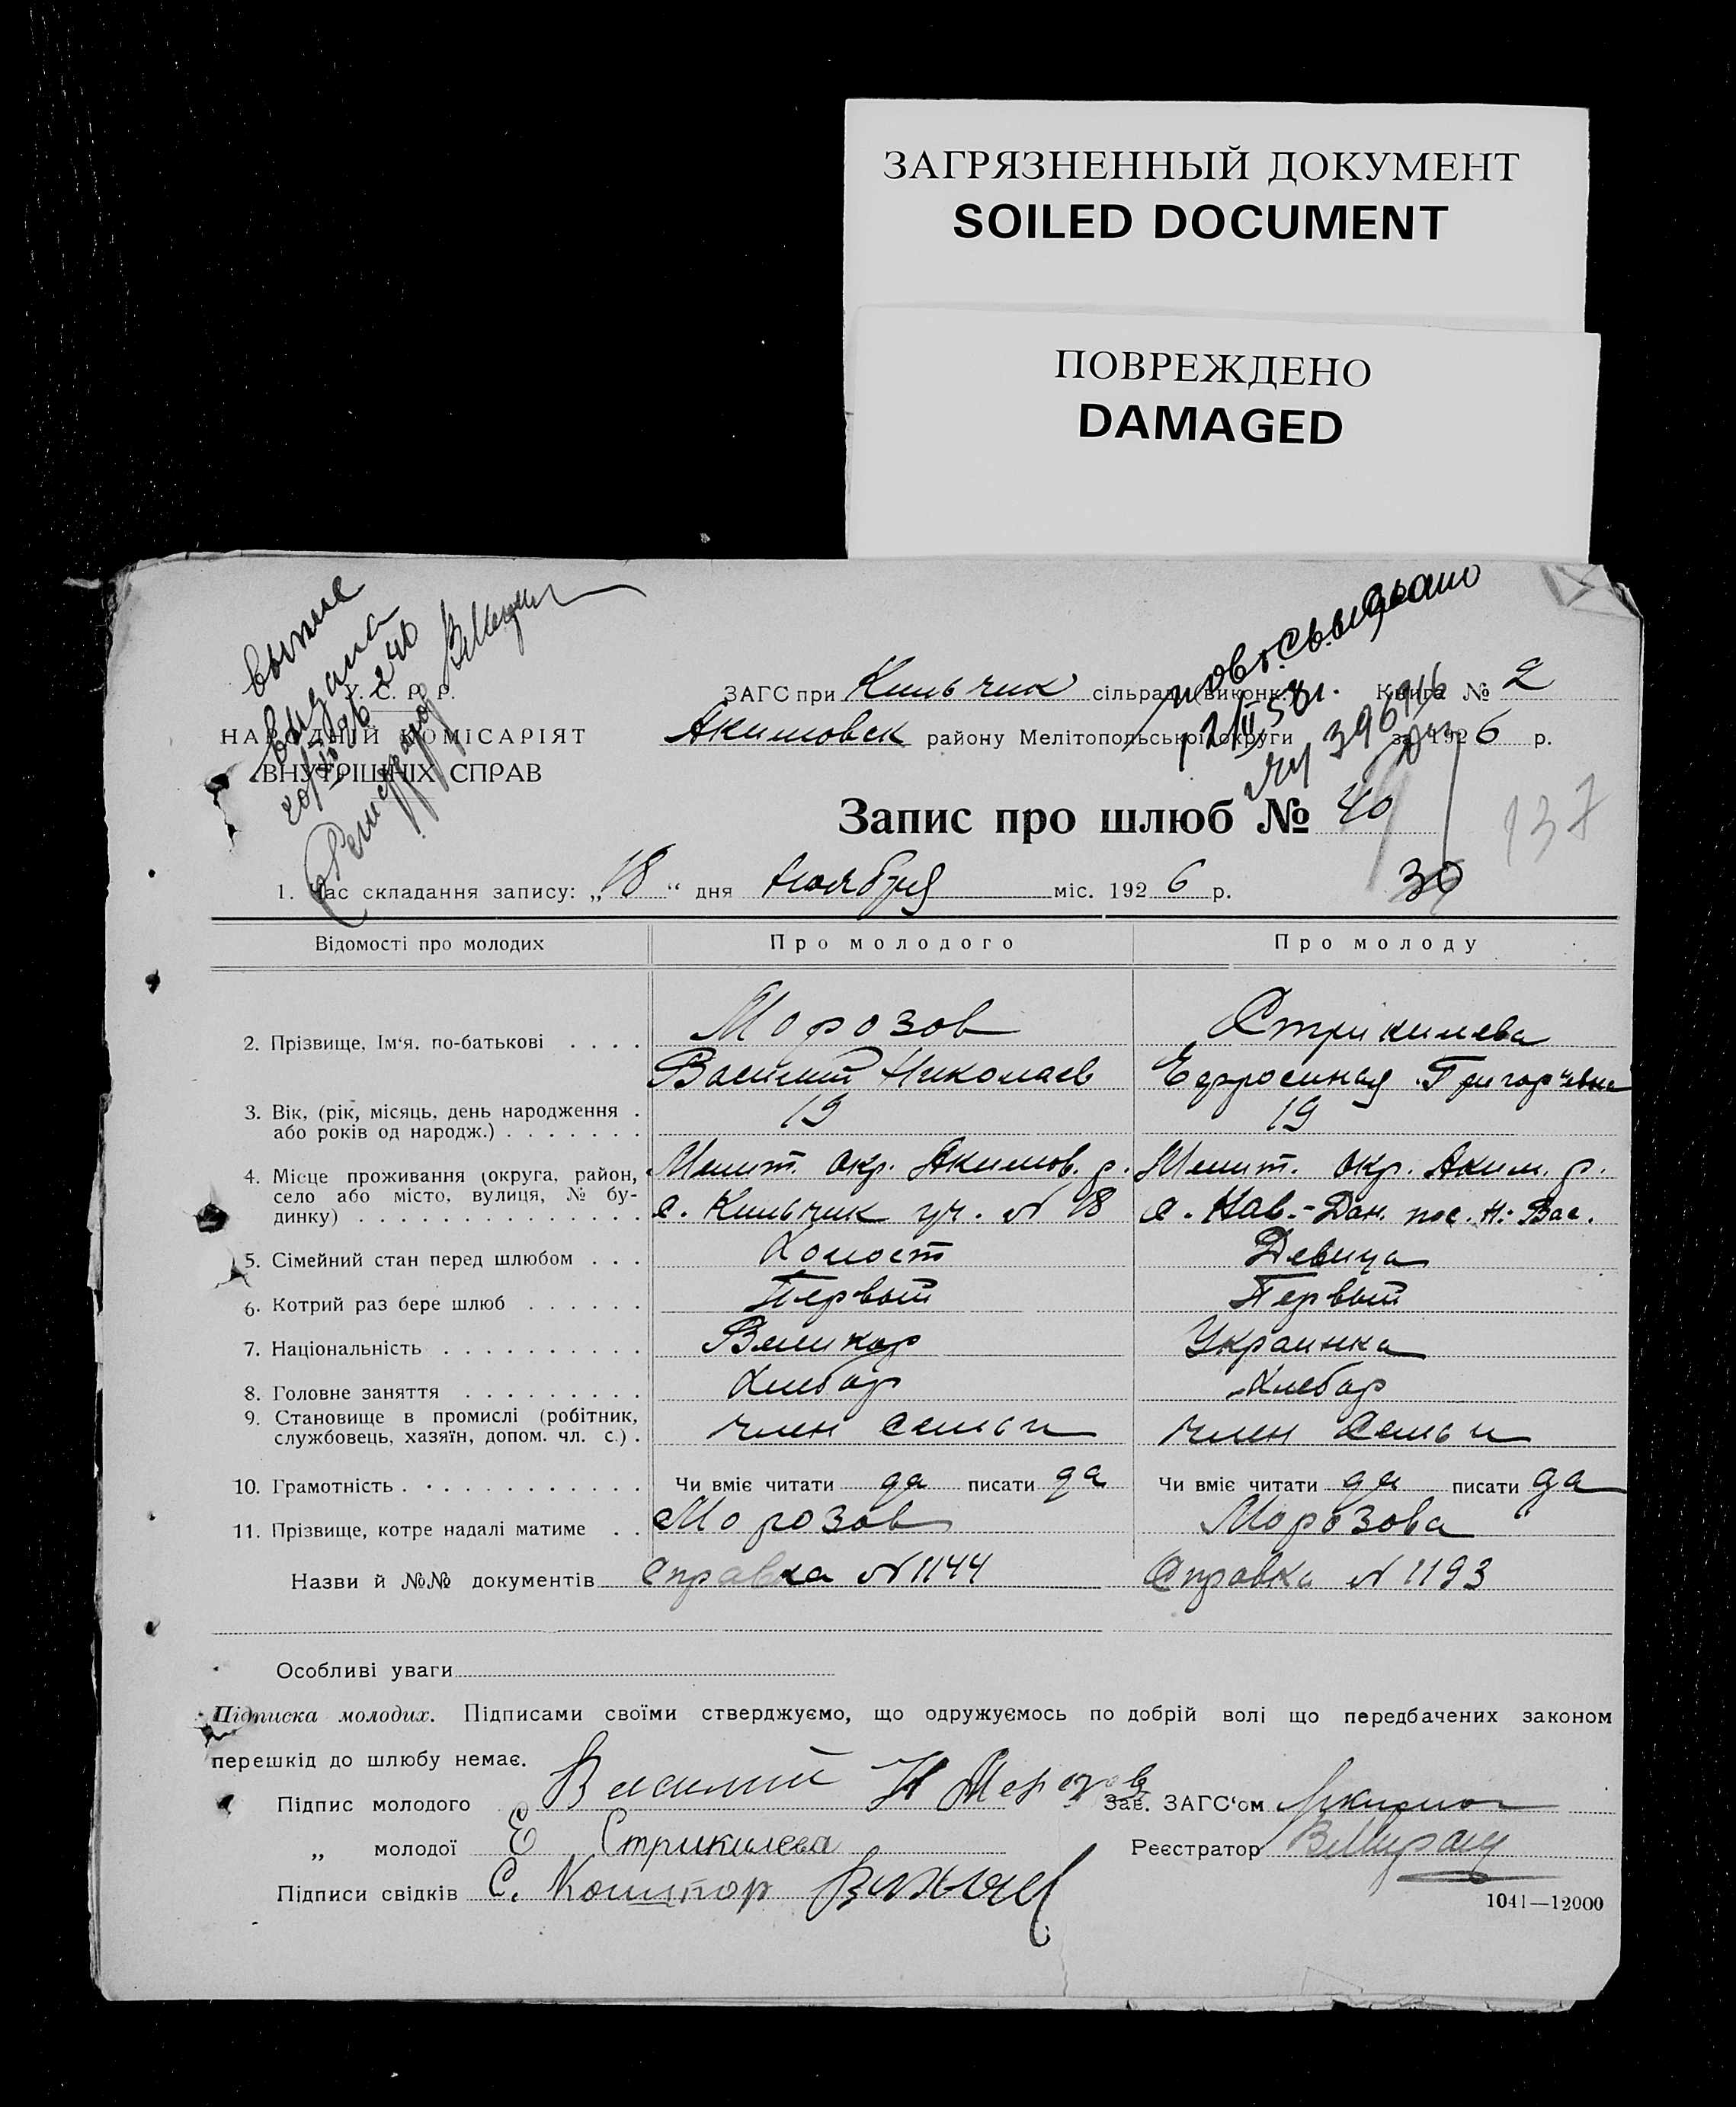 ЗАГРЯЗНЕННЫЙ ДОКУМЕНТ
SOILED DOCUMENT
ПОВРЕЖДЕНО
DAMAGED
выдана
повт. св. выдано
У. С. Р. Р.
НАРОДНІЙ КОМІСАРІЯТ
ВНУТРІШНІХ СПРАВ
ЗАГС при Кильчик сільраді (виконк.) Книга № 2
Акимовск району Мелітопольської округи за 1926 р.
Запис про шлюб № 40
137
30
1. Час складання запису: „18“ дня Ноября міс. 1926 р.
Відомості про молодих Про молодого Про молоду
2. Прізвище, Ім'я, по-батькові . . . . Морозов Стрикилева
Василий Николаев Ефросиная Григорьевна
3. Вік, (рік, місяць, день народження . 19 19
або років од народж.) . . . . . . .
4. Місце проживання (округа, район, Мелит. Окр. Акимов. р. Мелит. Окр. Аким. р.
село або місто, вулиця, № бу-
динку) . . . . . . . . . . . . . . с. Кильчик уч. № 18 с. Кав.-Дан. пос. Н.-Вас.
5. Сімейний стан перед шлюбом . . . Холост Девица
6. Котрий раз бере шлюб . . . . . . Первый Первый
7. Національність . . . . . . . . . . Великор Украинка
8. Головне заняття . . . . . . . . . Хлебор Хлебор
9. Становище в промислі (робітник,
службовець, хазяїн, допом. чл. с.) . член семьи член семьи
10. Грамотність . . . . . . . . . . . Чи вміє читати да писати да Чи вміє читати да писати да
11. Прізвище, котре надалі матиме . . Морозов Морозова
Назви й №№ документів Справка № 1144 Справка № 1193
Особливі уваги
Підписка молодих. Підписами своїми стверджуємо, що одружуємось по добрій волі що передбачених законом
перешкід до шлюбу немає.
Підпис молодого Василий Н Морозов Зав. ЗАГС'ом
„ молодої Е Стрикилева Реєстратор
Підписи свідків С.
1041—12000